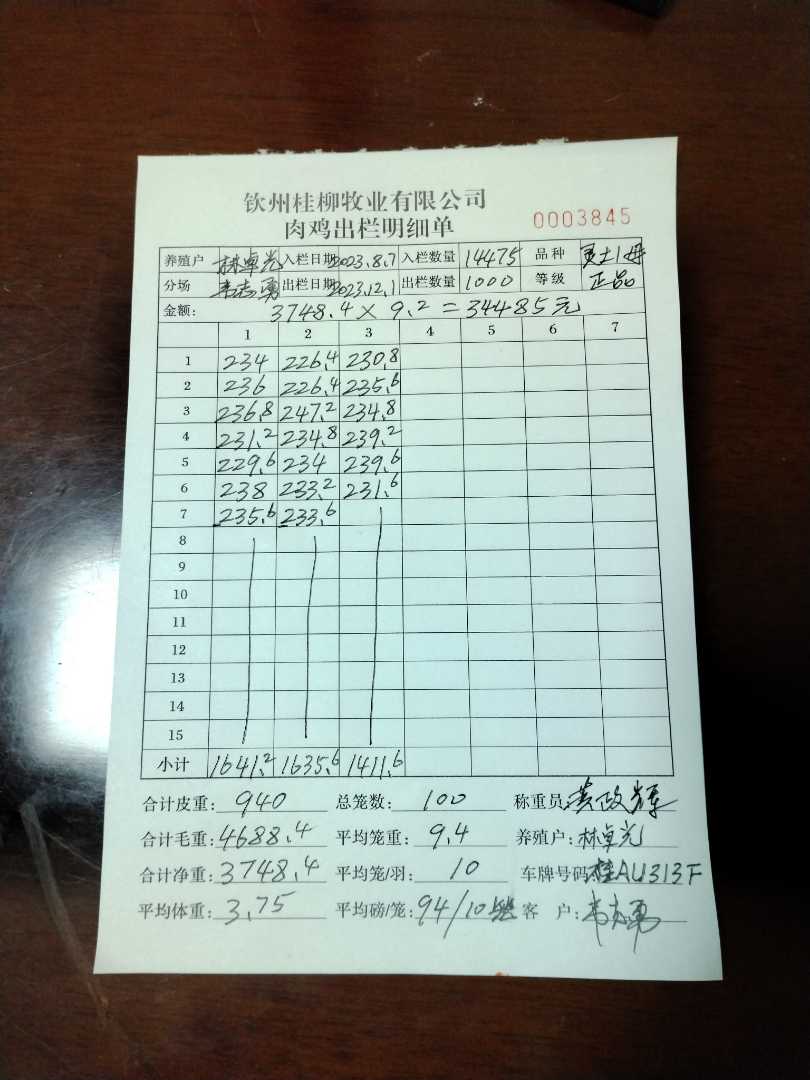 钦州桂柳牧业有限公司
肉鸡出栏明细单 0003845
养殖户 林卓光 入栏日期 2023.8.7 入栏数量 14475 品种 土1母
分场 韦志勇 出栏日期 2023.12.1 出栏数量 1000 等级 正品
金额: 3748.4 × 9.2 = 34485元
1 2 3 4 5 6 7
1 234 226.4 230.8
2 236 226.4 235.6
3 236.8 247.2 234.8
4 231.2 234.8 239.2
5 229.6 234 239.6
6 238 233.2 231.6
7 235.6 233.6
8
9
10
11
12
13
14
15
小计 1641.2 1635.6 1411.6
合计皮重: 940 总笼数: 100 称重员: 黄政辉
合计毛重: 4688.4 平均笼重: 9.4 养殖户: 林卓光
合计净重: 3748.4 平均笼/羽: 10 车牌号码: 桂AU313F
平均体重: 3.75 平均磅/笼: 94/10 客 户: 韦志勇